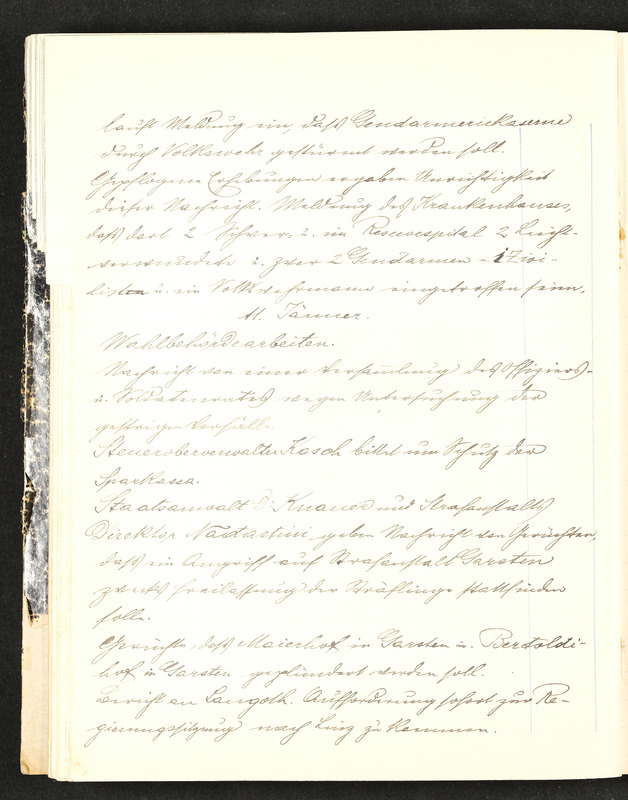 lauft Meldung ein, daß Gendarmeriekaserne
durch Volkswehr gestürmt werden soll.
Gepflogene Erhebungen ergaben Unrichtigkeit
dieser Nachricht. Meldung des Krankenhauses,
daß dort 2 Schwer- u. im Reservespital 2 Leicht-
verwundete u. zwar 2 Gendarmen - 1 Zivi-
listen u. ein Volkswehrmann eingetroffen seien.
11. Jänner.
Wahlbehördearbeiten.
Nachricht von einer Versammlung des Offiziers-
u. Soldatenrates wegen Untersuchung der
gestrigen Vorfälle.
Steueroberverwalter Kosch bittet um Schutz der
Sparkassa.
Staatsanwalt Dr. Knauer und Strafanstalts
Direktor Nadastini geben Nachricht von Gerüchten,
daß ein Angriff auf Strafanstalt Garsten
zwecks Freilassung der Sträflinge stattfinden
solle.
Gerüchte, daß Maierhof in Garsten u. Bertoldi-
hof in Garsten geplündert werden soll.
Bericht an Langoth. Aufforderung sofort zur Re-
gierungssitzung nach Linz zu kommen.